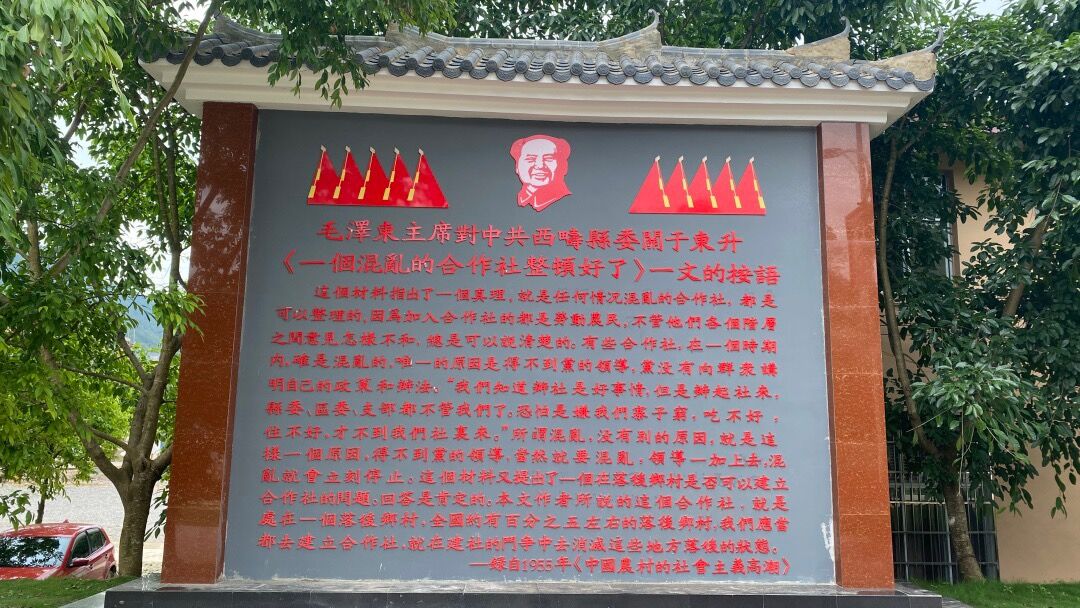 毛澤東主席對中共西疇縣委關于東升
《一個混亂的合作社整頓好了》一文的按語
這個材料指出了一個真理，就是任何情况混亂的合作社，都是
可以整理的，因爲加入合作社的都是勞動農民，不管他們各個階層
之間意見怎樣不和，總是可以説清楚的。有些合作社，在一個時期
内，確是混亂的，唯一的原因是得不到黨的領導，黨没有向群衆講
明自己的政策和辦法。“我們知道辦社是好事情，但是辦起社來，
縣委、區委、支部都不管我們了。恐怕是嫌我們寨子窮，吃不好，
住不好，才不到我們社裏來。”所謂混亂，没有别的原因，就是這
樣一個原因，得不到黨的領導，當然就要混亂，領導一加上去，混
亂就會立刻停止。這個材料又提出了一個在落後鄉村是否可以建立
合作社的問題，回答是肯定的。本文作者所説的這個合作社，就是
處在一個落後鄉村，全國約有百分之五左右的落後鄉村，我們應當
都去建立合作社，就在建社的鬥争中去消滅這些地方落後的狀態。
—録自1955年《中國農村的社會主義高潮》